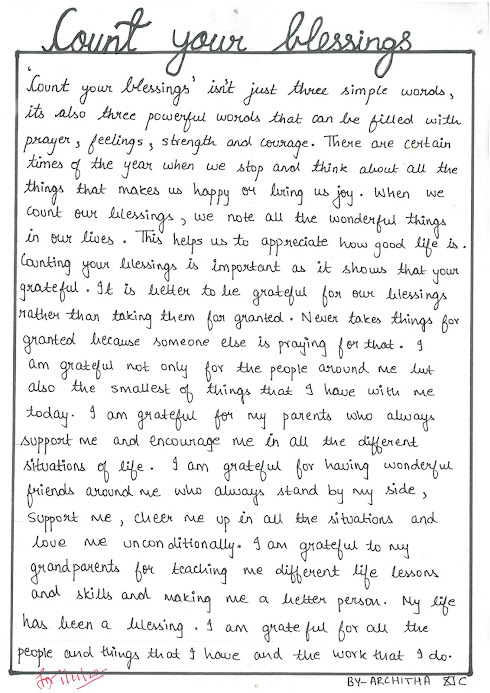 Count your blessings
'Count your blessings' isn't just three simple words,
its also three powerful words that can be filled with
prayer, feelings, strength and courage. There are certain
times of the year when we stop and think about all the
things that makes us happy or bring us joy. When we
count our blessings, we note all the wonderful things
in our lives. This helps us to appreciate how good life is.
Counting your blessings is important as it shows that your
grateful. It is better to be grateful for our blessings
rather than taking them for granted. Never takes things for
granted because someone else is praying for that. I
am grateful not only for the people around me but
also the smallest of things that I have with me
today. I am grateful for my parents who always
support me and encourage me in all the different
situations of life. I am grateful for having wonderful
friends around me who always stand by my side,
support me, cheer me up in all the situations and
love me unconditionally. I am grateful to my
grandparents for teaching me different life lessons
and skills and making me a better person. My life
has been a blessing. I am grateful for all the
people and things that I have and the work that I do.
BY-ARCHITHA XI C